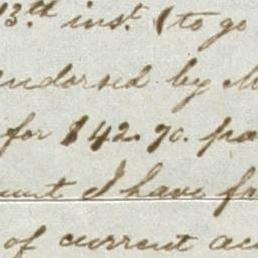 13.th inst. (to go
endorsed by M
for $42.70. pa
unt I have fo
of current acc